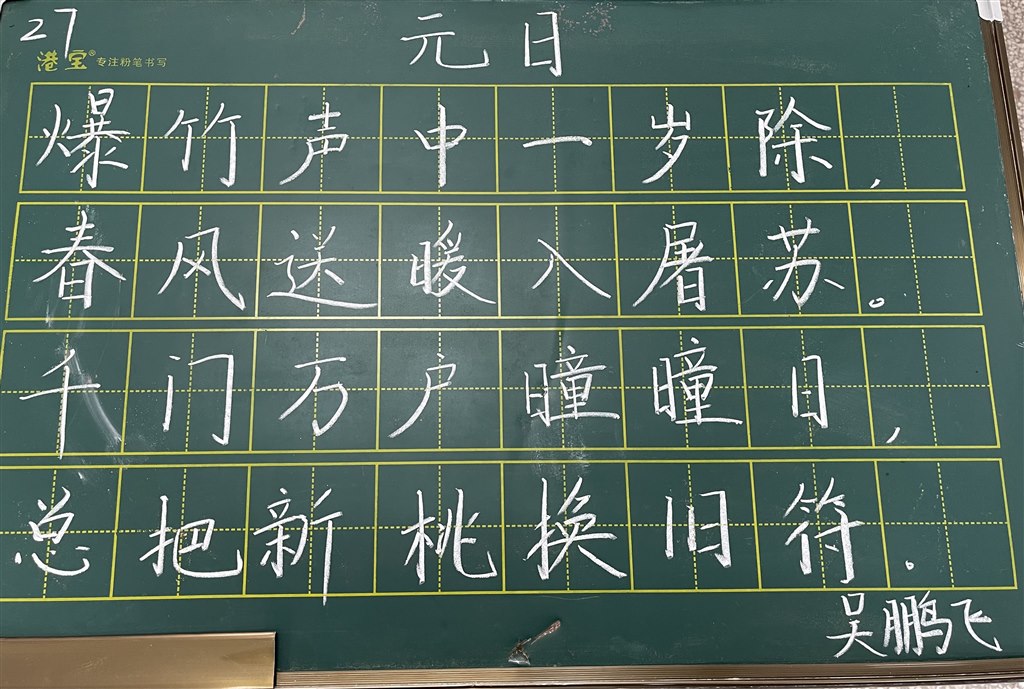 27
元日
港宝® 专注粉笔书写
爆竹声中一岁除,
春风送暖入屠苏。
千门万户瞳瞳日,
总把新桃换旧符.
吴鹏飞